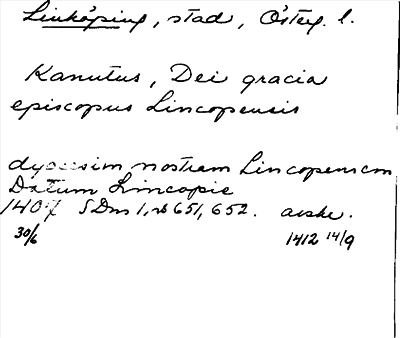 Linköping, stad, Österg. l.
Kanutus, Dei gracia
episcopus Lincopensis
dyocesim nostram Lincopensem
Datum Lincopie
1407 SDns 1, nb 651, 652. avskr.
30/6 1412 14/9